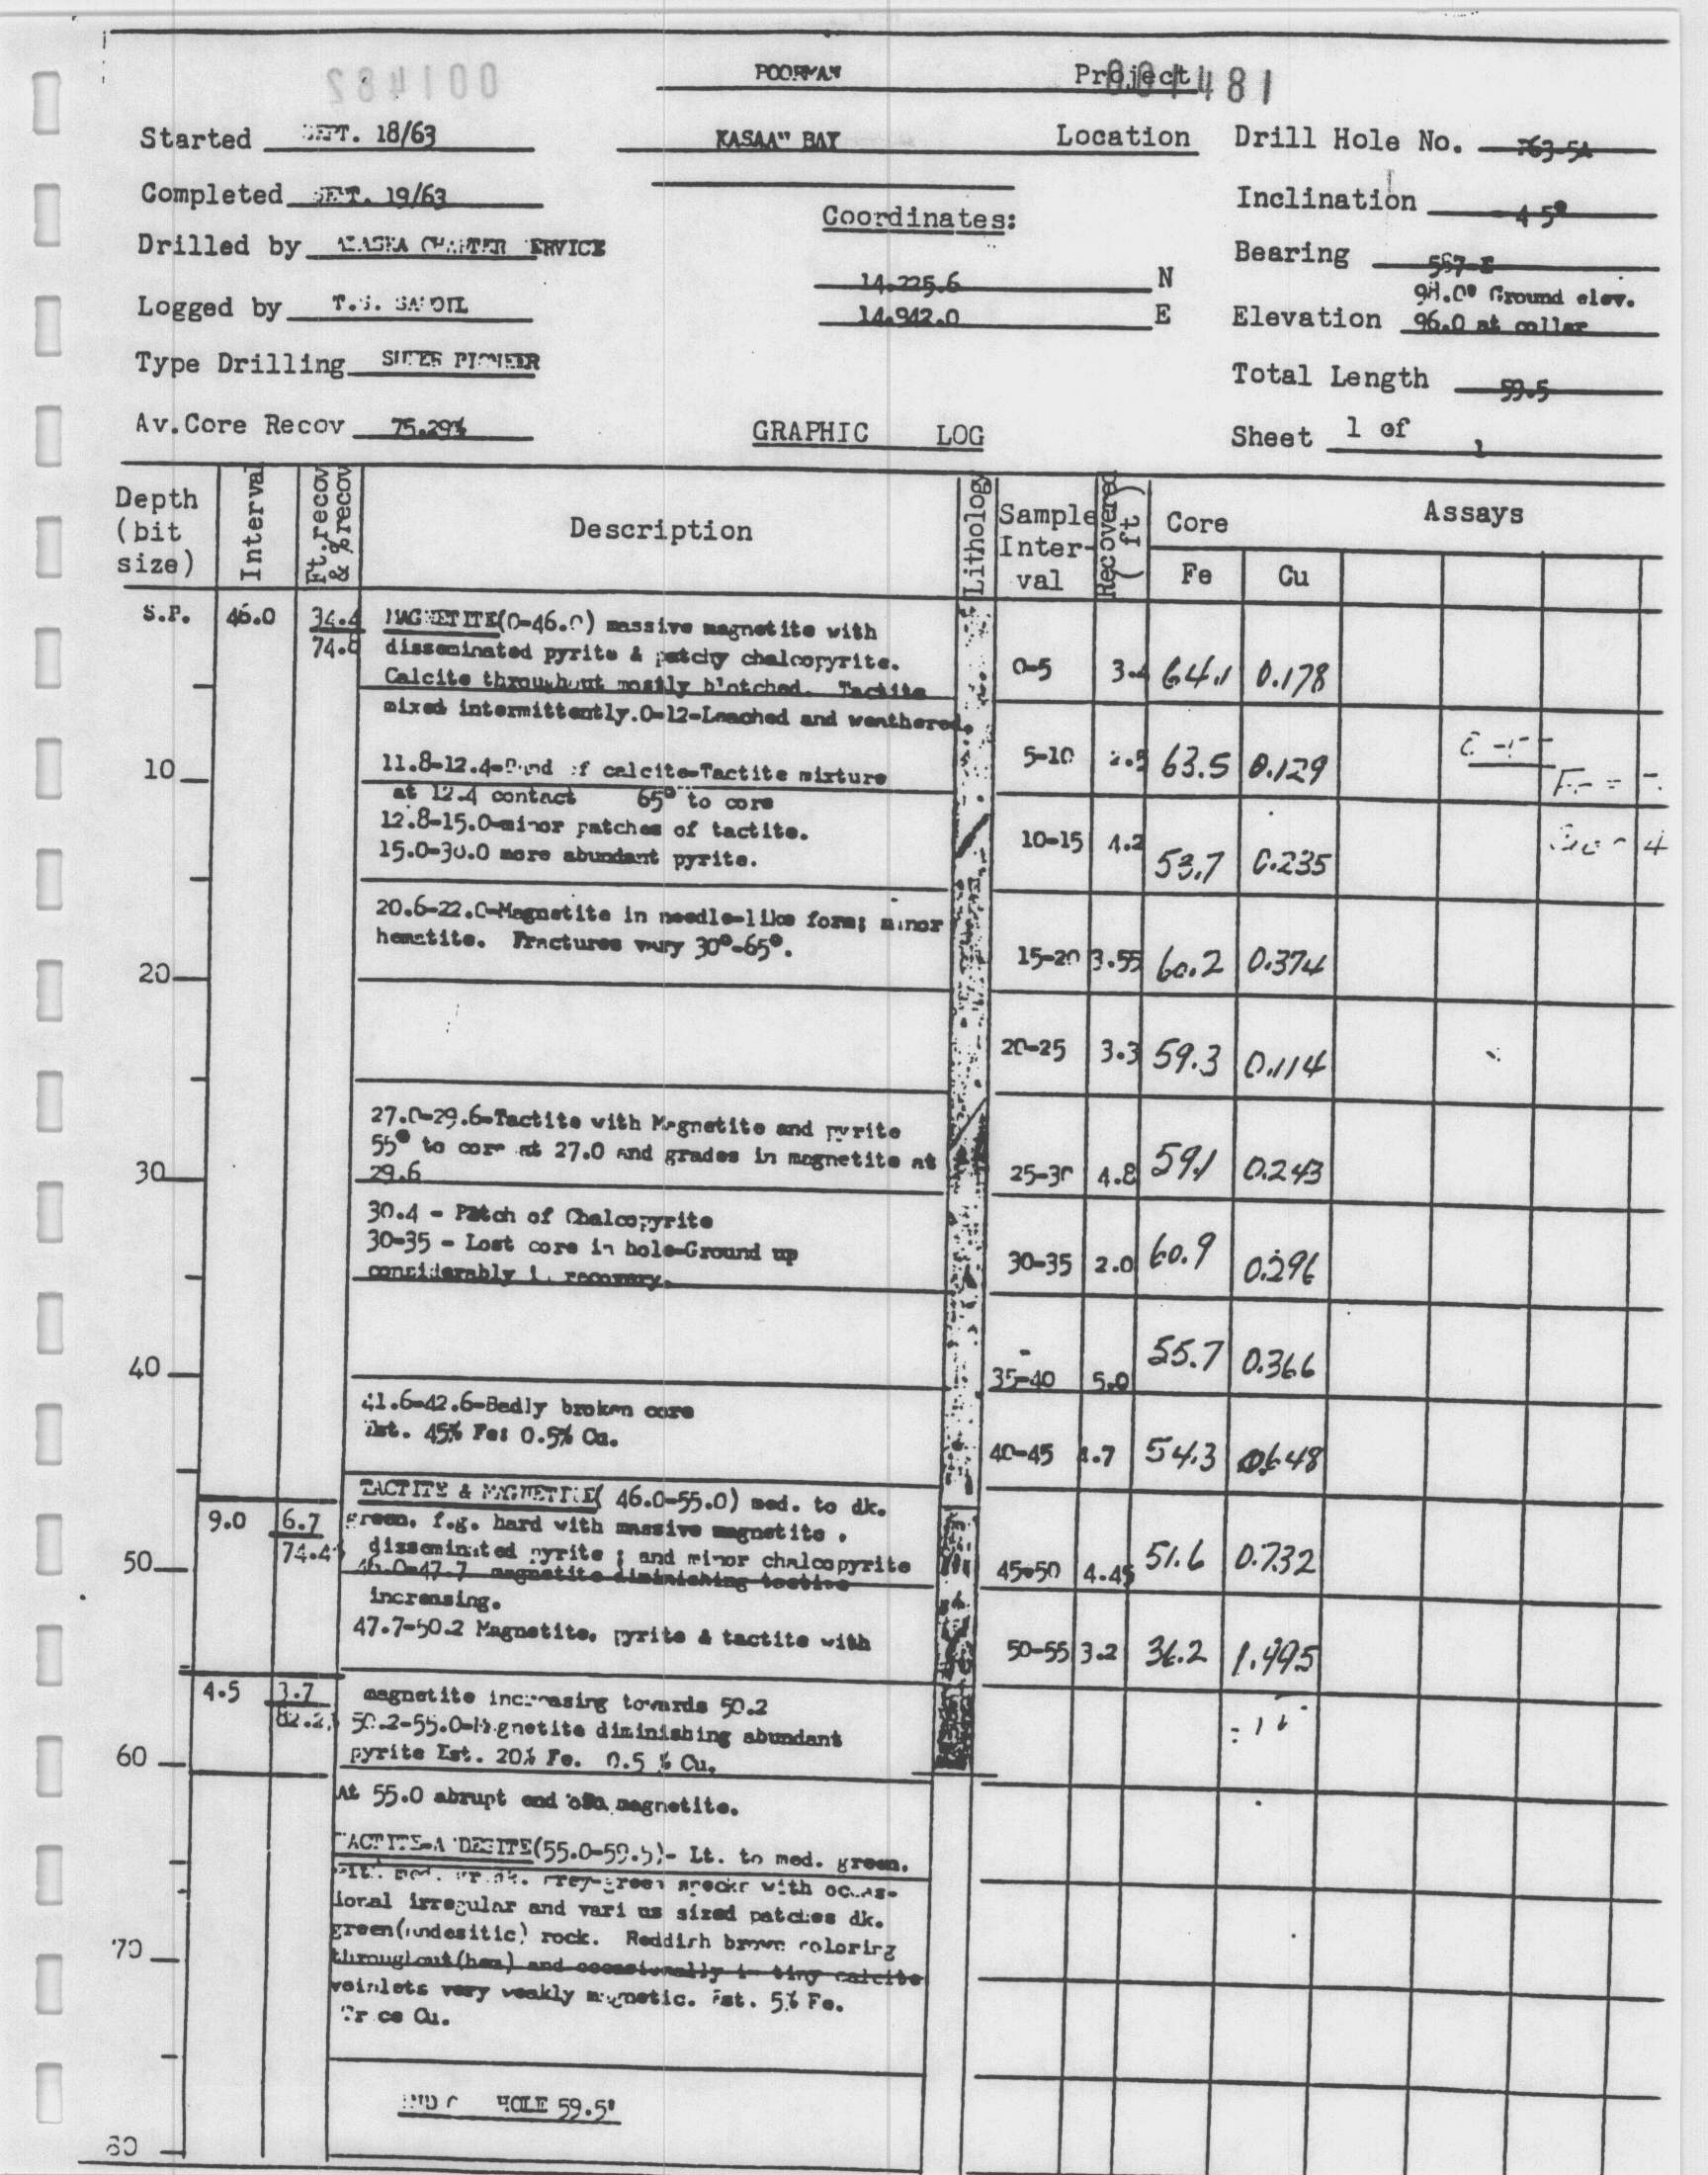 001482
POORMAN Project 001481
Started SEPT. 18/63
KASAAN BAY Location
Drill Hole No. P63-5A
Completed SEPT. 19/63
Inclination -45°
Coordinates:
Drilled by ALASKA CHARTER SERVICE
Bearing
14.225.6 N
98.0' Ground elev.
Logged by
14.942.0 E
Elevation 96.0 at collar
Type Drilling SUPER PIONEER
Total Length 59.5
Av.Core Recov 75.29%
GRAPHIC LOG
Sheet 1 of 1
Depth (bit size)
Interval
Ft.recov & %recov
Description
Lithology
Sample Inter-val
Recovered ( ft )
Core
Assays
Fe Cu
S.P. 46.0 34.4
74.8
MAGNETITE(0-46.0) massive magnetite with
disseminated pyrite & patchy chalcopyrite.
Calcite throughout mostly blotched. Tactite
mixed intermittently.0-12-Leached and weathered.
0-5 3.4 64.1 0.178
5-10 63.5 0.129
10
11.8-12.4-Band of calcite-Tactite mixture
at 12.4 contact 65° to core
12.8-15.0-minor patches of tactite.
15.0-30.0 more abundant pyrite.
10-15 4.2 53.7 0.235
20.6-22.0-Magnetite in needle-like form; minor
hematite. Fractures vary 30°-65°.
15-20 3.55 60.2 0.374
20
20-25 3.3 59.3 0.114
27.0-29.6-Tactite with Magnetite and pyrite
55° to core at 27.0 and grades in magnetite at
29.6
25-30 4.8 59.1 0.243
30
30.4 - Patch of Chalcopyrite
30-35 - Lost core in hole-Ground up
considerably in recovery.
30-35 2.0 60.9 0.296
35-40 5.0 55.7 0.366
40
41.6-42.6-Badly broken core
Est. 45% Fe: 0.5% Cu.
40-45 4.7 54.3 0.648
TACTITE & MAGNETITE( 46.0-55.0) med. to dk.
9.0 6.7
74.4%
green. f.g. hard with massive magnetite .
disseminated pyrite ; and minor chalcopyrite
46.0-47.7 magnetite diminishing tactite
increasing.
45-50 4.45 51.6 0.732
50
47.7-50.2 Magnetite. pyrite & tactite with
50-55 3.2 36.2 1.495
4.5 3.7
82.2%
magnetite increasing towards 50.2
50.2-55.0-Magnetite diminishing abundant
pyrite Est. 20% Fe. 0.5 % Cu.
60
At 55.0 abrupt end magnetite.
TACTITE-ANDESITE(55.0-59.5)- Lt. to med. green.
with med. grey-green specks with occas-
ional irregular and various sized patches dk.
green(andesitic) rock. Reddish brown coloring
70
throughout(hem) and occasionally in tiny calcite
veinlets very weakly magnetic. Est. 5% Fe.
Trace Cu.
END OF HOLE 59.5'
80